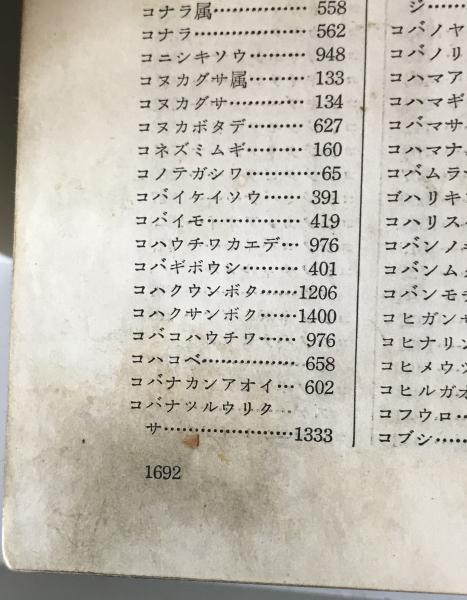 コナラ属……………558
コナラ…………………562
コニシキソウ………948
コヌカグサ属………133
コヌカグサ…………134
コヌカボタデ………627
コネズミムギ………160
コノテガシワ…………65
コバイケイソウ……391
コバイモ……………419
コハウチワカエデ…976
コバギボウシ………401
コハクウンボク……1206
コハクサンボク……1400
コバコハウチワ……976
コハコベ……………658
コバナカンアオイ…602
コバナツルウリク
サ…………………1333
1692
ジ……
コバノヤ
コバノリ
コハマア
コハマギ
コバマサ
コハマナ
コバムラ
ゴハリキ
コハリス
コバンノ
コバンム
コバンモ
コヒガン
コヒナリン
コヒメウ
コヒルガオ
コフウロ…
コブシ……